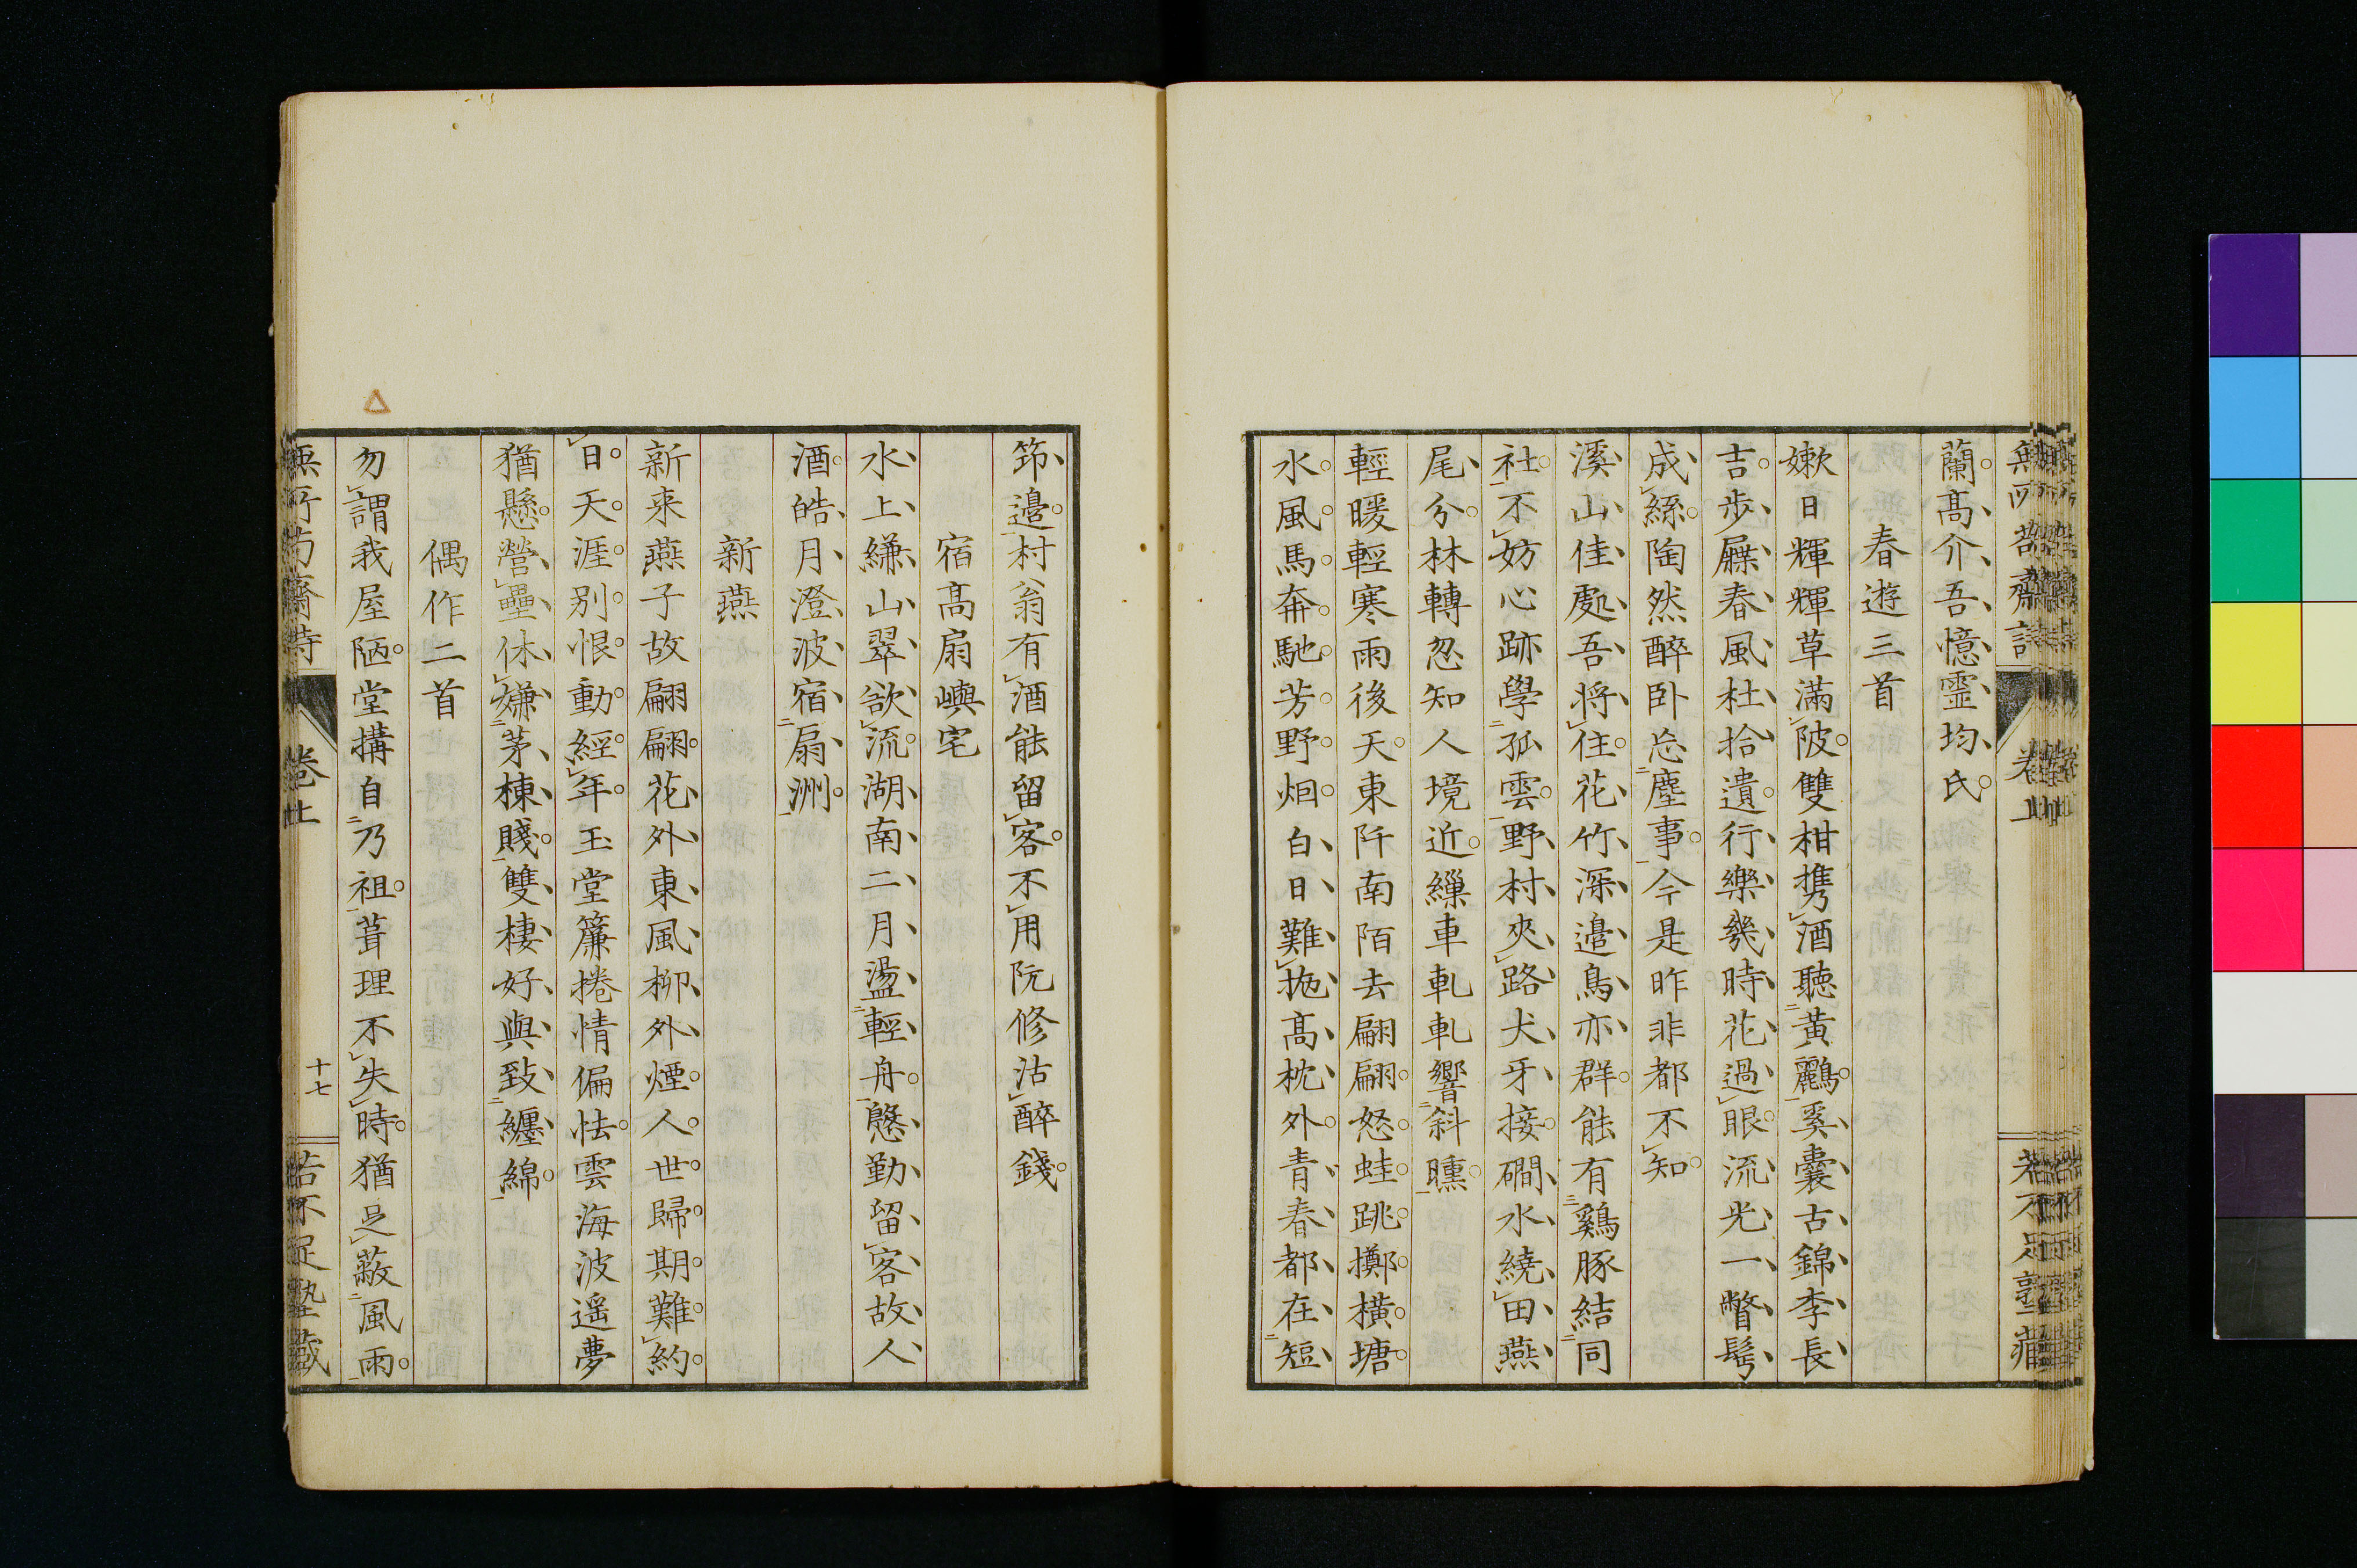 蘭高介吾憶靈均氏
春遊三首
嫰日輝輝草滿陂雙柑携酒聽黃鸝奚囊古錦李長
吉步屧春風杜拾遺行樂幾時花過眼流光一瞥髩
成絲陶然醉卧忘塵事今是昨非都不知
溪山佳處吾將住花竹深邊鳥亦群能有鷄豚結同
社不妨心跡學孤雲野村夾路犬牙接磵水繞田燕
尾分林轉忽知人境近繅車軋軋響斜曛
輕暖輕寒雨後天東阡南陌去翩翩怒蛙跳擲橫塘
水風馬奔馳芳野烟白日難拖高枕外青春都在短
筇邊村翁有酒能留客不用阮修沽醉錢
宿高扇嶼宅
水上縑山翠欲流湖南二月盪輕舟慇勤留客故人
酒皓月澄波宿扇洲
新燕
新来燕子故翩翩花外東風柳外煙人世歸期難約
日天涯別恨動經年玉堂簾捲情偏怯雲海波遥夢
猶懸營壘休嫌茅棟賤雙棲好與致纏綿
偶作二首
勿謂我屋陋堂搆自乃祖葺理不失時猶足蔽風雨
卷上
十七